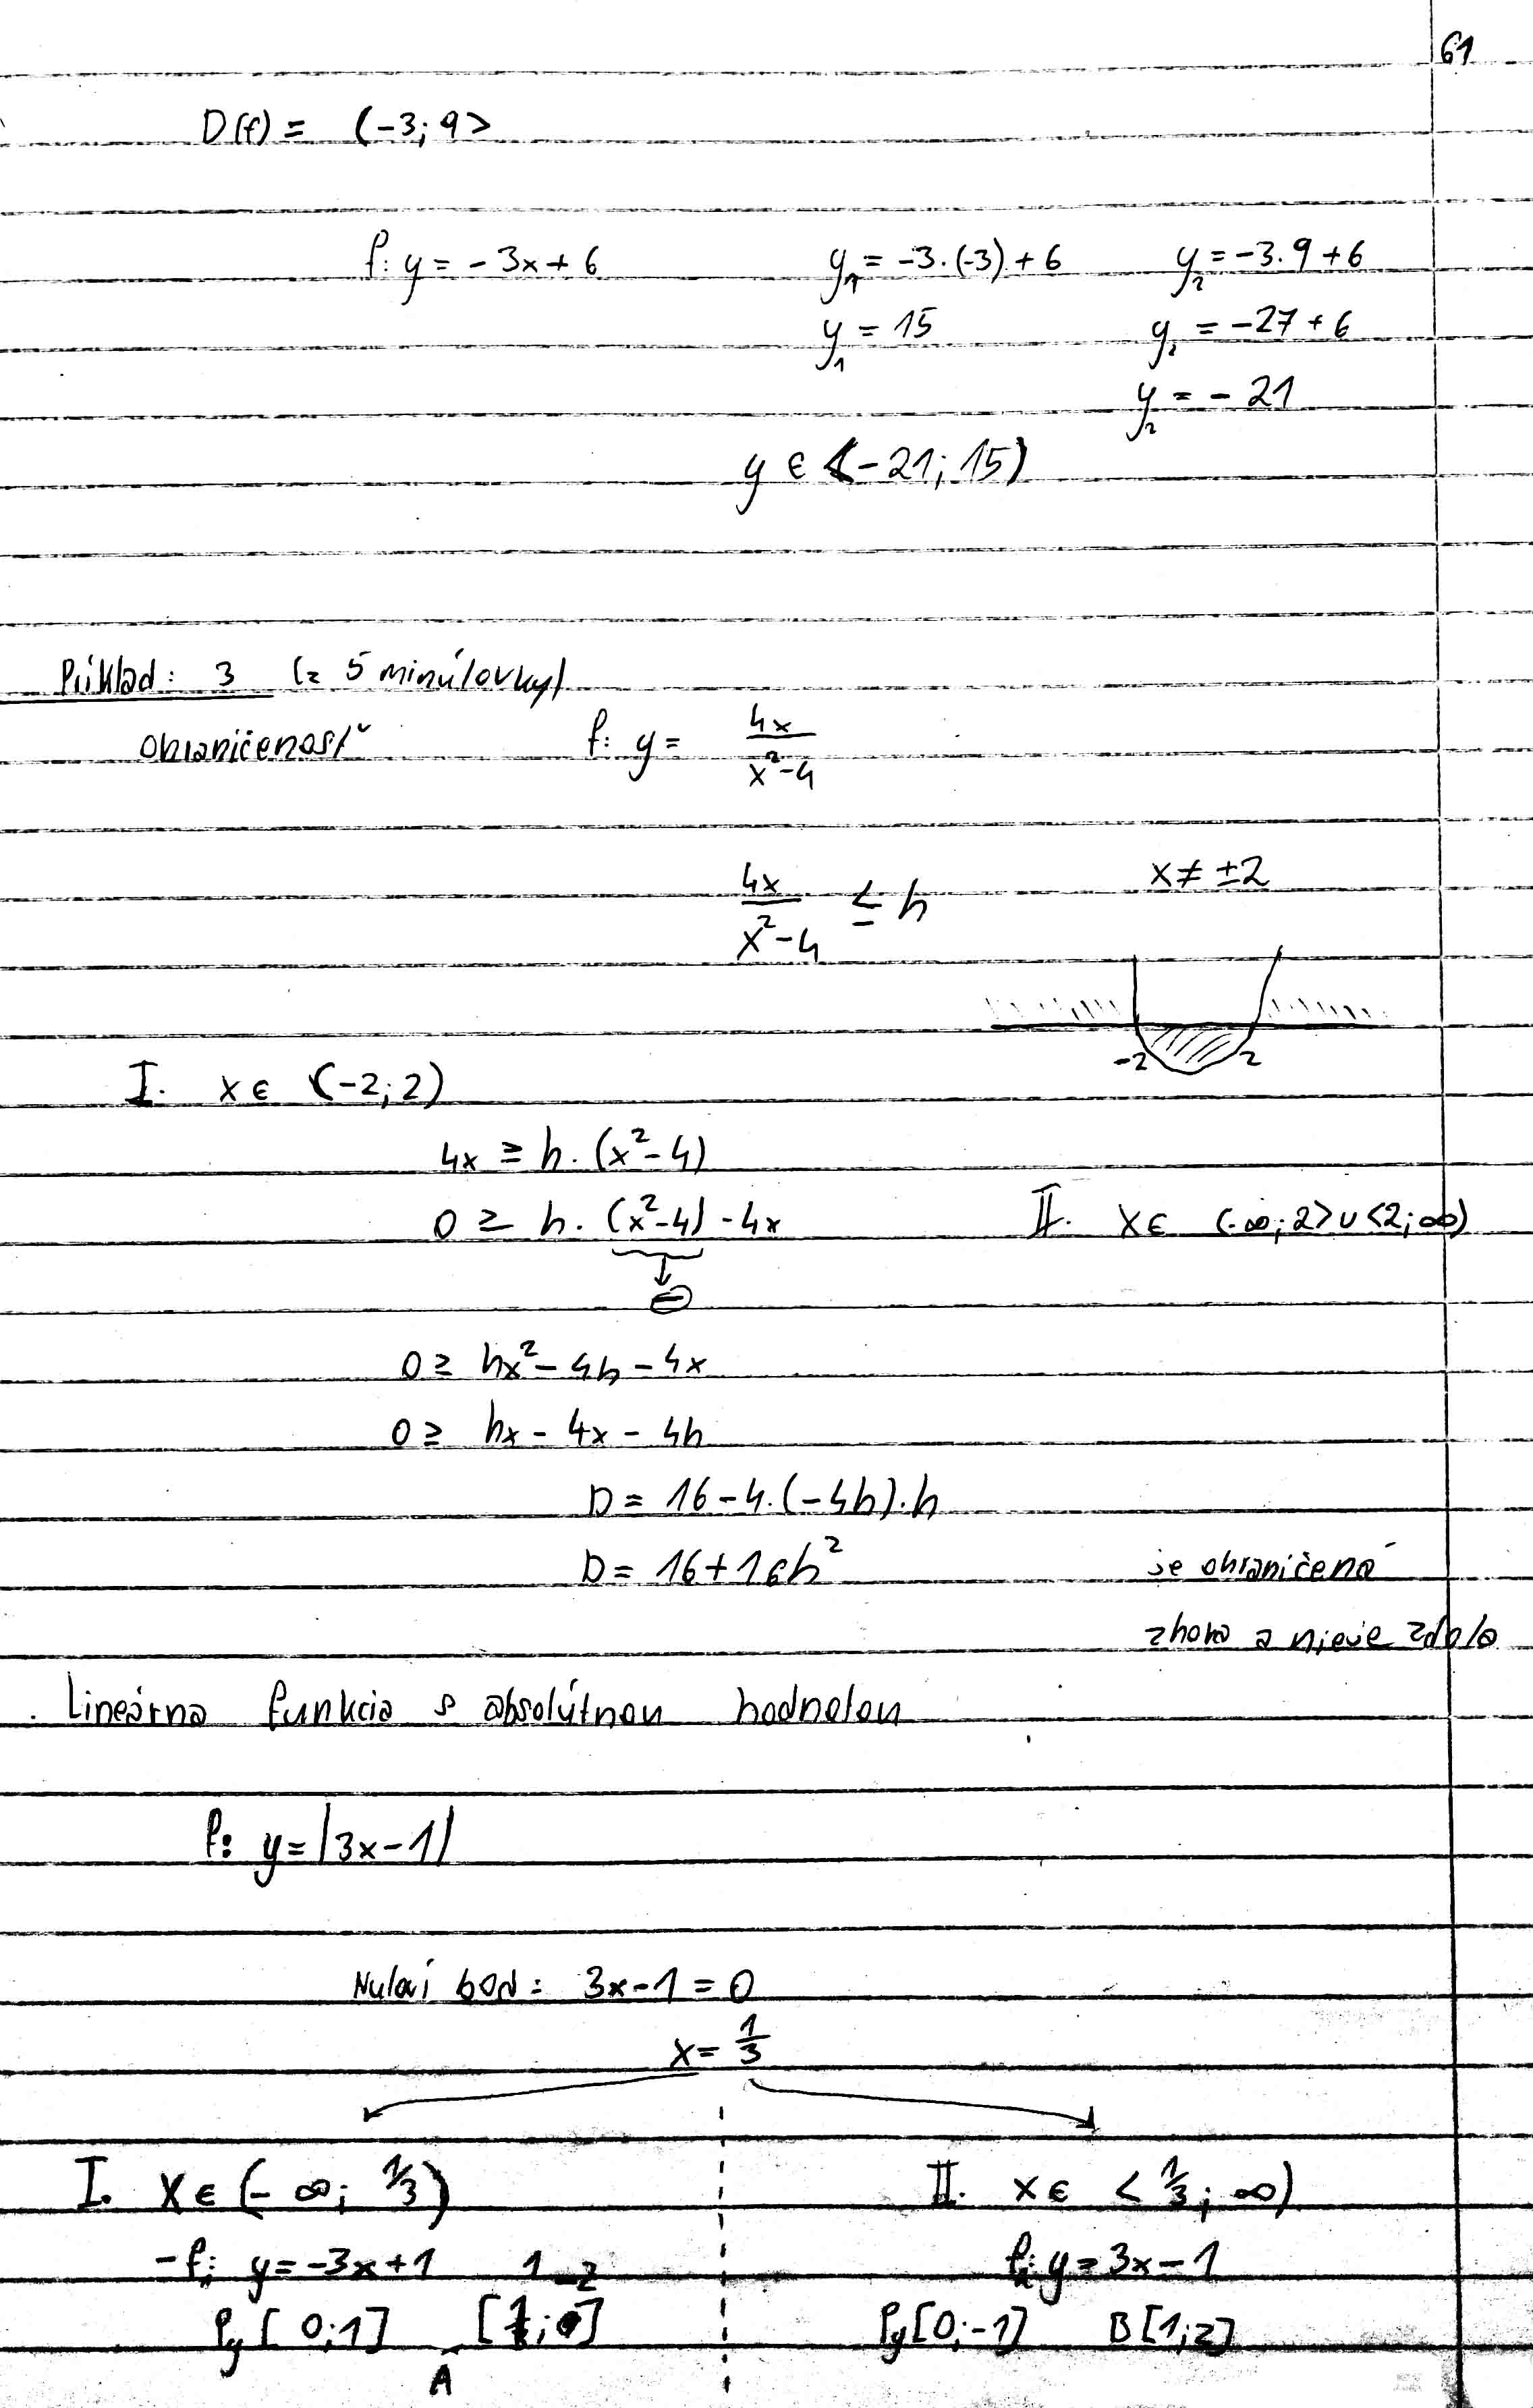 61
D(f) = (-3; 9>
f: y = -3x + 6    y₁ = -3.(-3) + 6    y₂ = -3.9 + 6
y₁ = 15    y₂ = -27 + 6
y₂ = -21
y ∈ <-21; 15)
Príklad: 3 (z 5 minútovky)
Ohraničenosť    f: y = 4x / x²-4
4x / x²-4 ≤ h    x ≠ ±2
-2    2
I. x ∈ (-2; 2)
4x ≥ h. (x²-4)
0 ≥ h. (x²-4) - 4x    II. x ∈ (-∞; 2> ∪ <2; ∞)
↓
⊖
0 ≥ hx² - 4h - 4x
0 ≥ hx - 4x - 4h
D = 16 - 4.(-4h).h
D = 16 + 16h²    je ohraničená
zhora a nieje zdola
Lineárna funkcia s absolútnou hodnotou
f: y = |3x - 1|
Nulový bod: 3x - 1 = 0
x = 1/3
I. x ∈ (-∞; 1/3)    II. x ∈ <1/3; ∞)
-f₁: y = -3x + 1    1 -2    f₂: y = 3x - 1
Py [0; 1]    Py [0; -1]    B [1; 2]
A